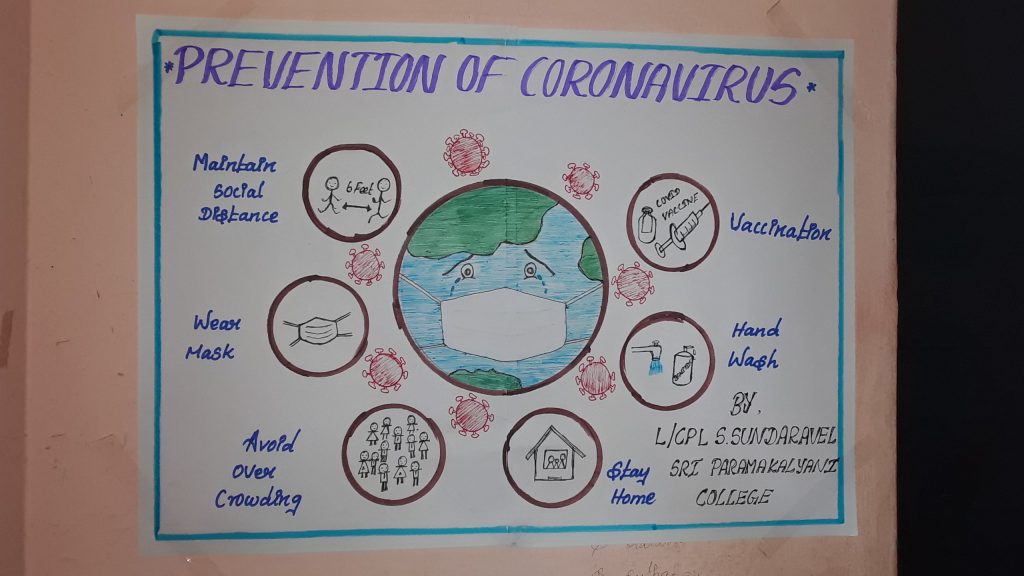 *PREVENTION OF CORONAVIRUS*
Maintain
Social
Distance
6 Feet
COVID
VACCINE
Vaccination
Wear
Mask
Hand
Wash
Avoid
Over
Crowding
Stay
Home
BY,
L/CPL S.SUNDARAVEL
SRI PARAMAKALYANI
COLLEGE